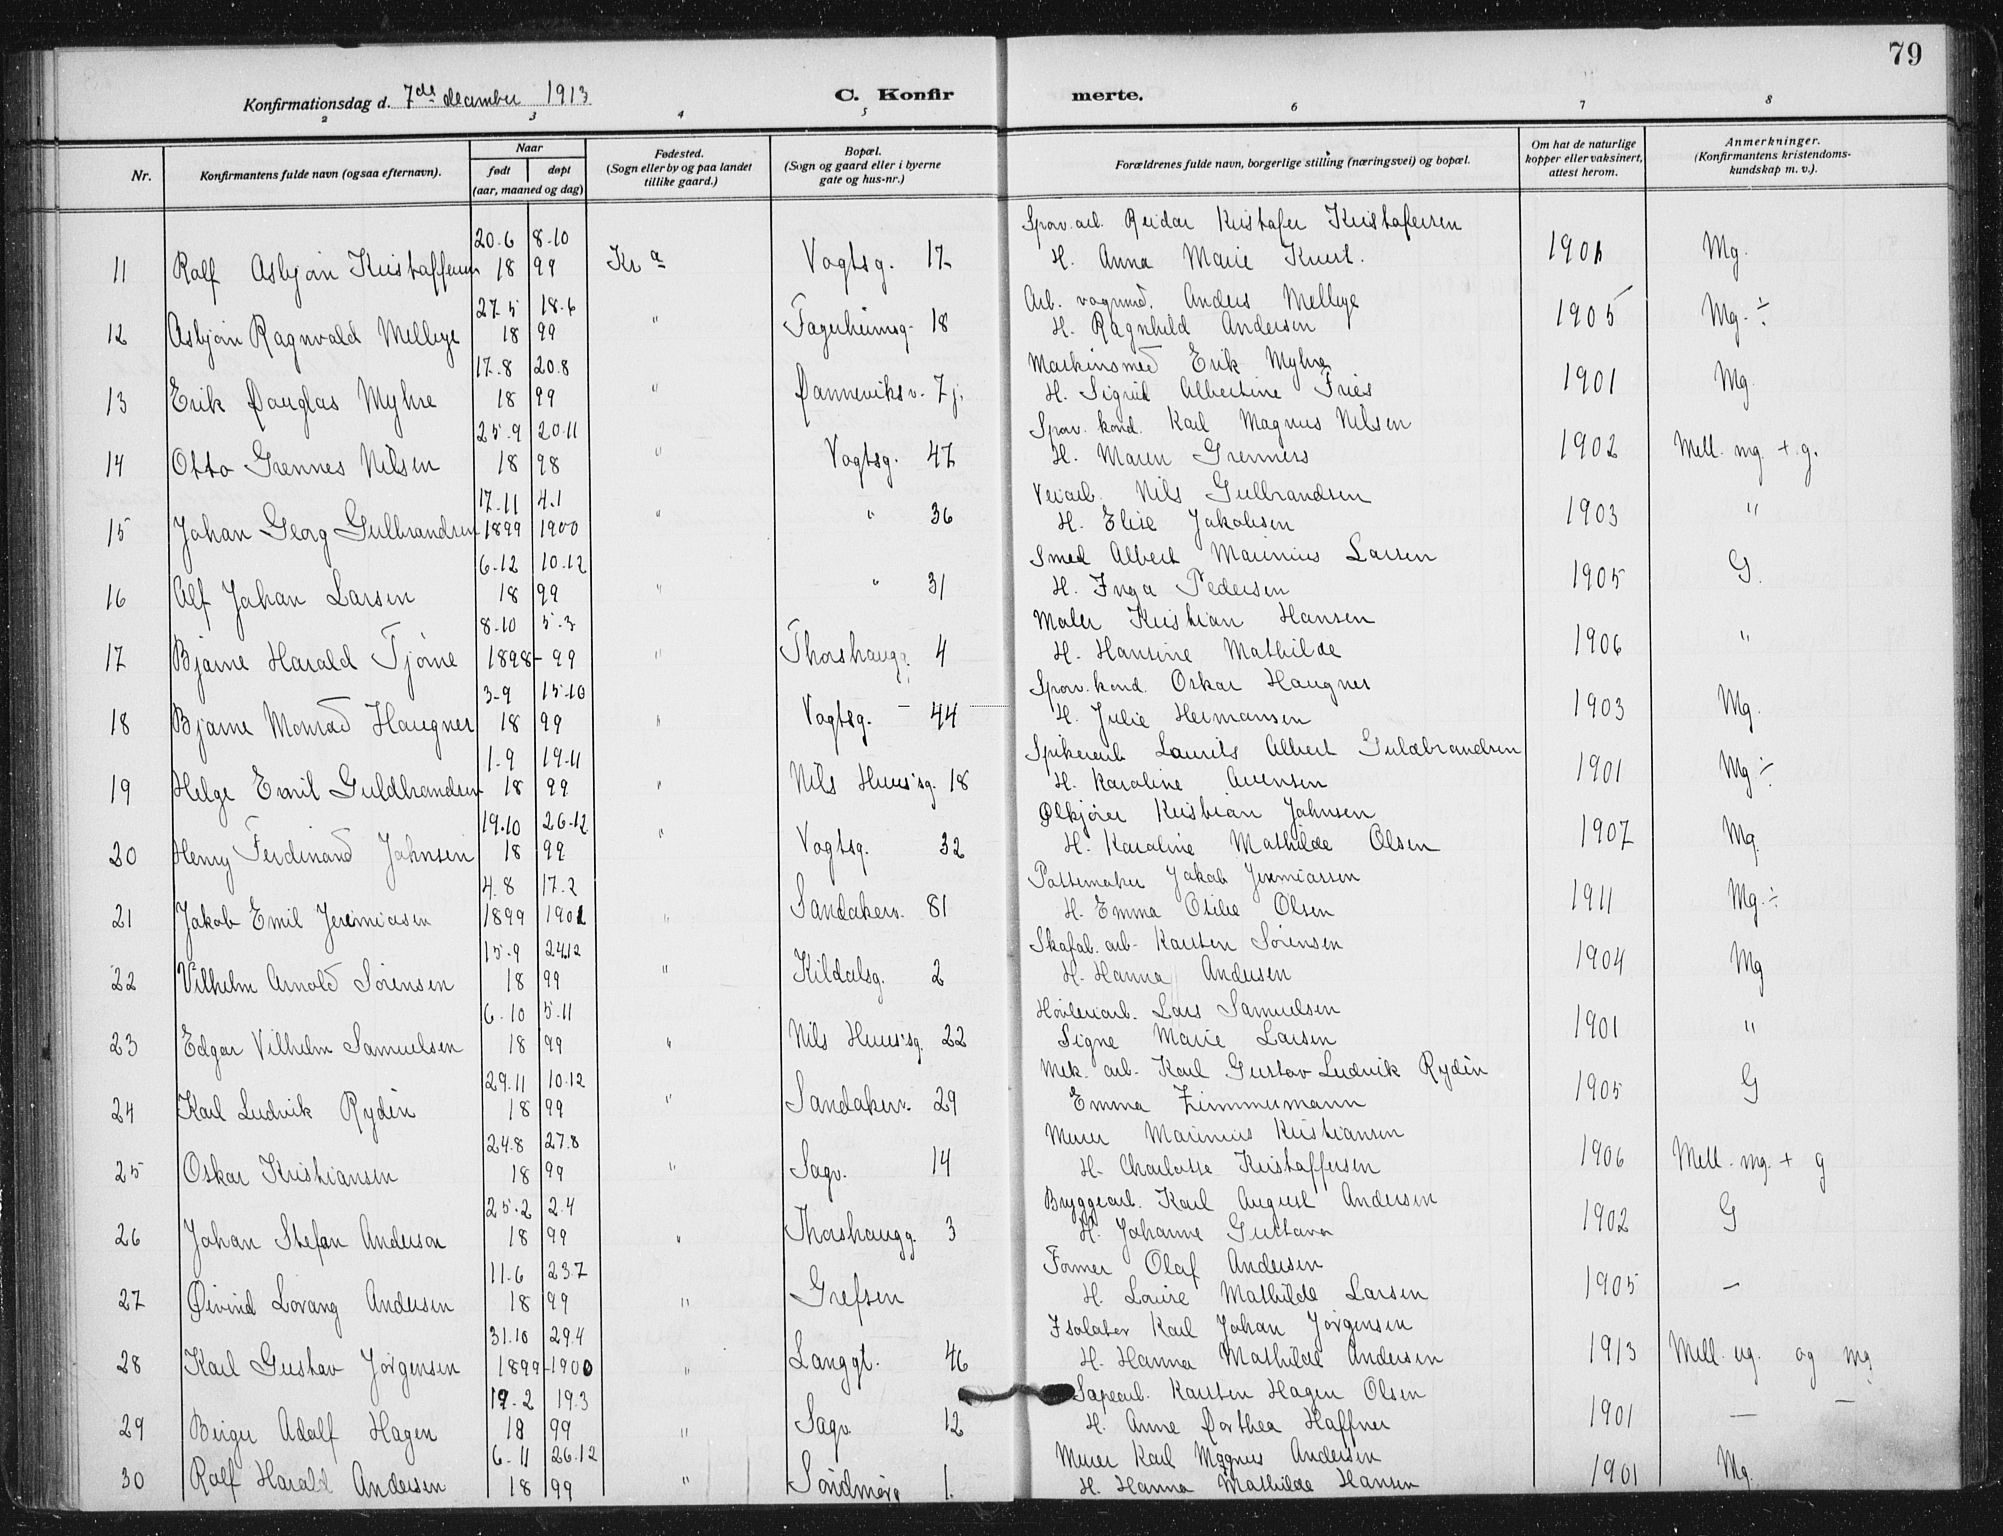 79
Konfirmationsdag d. 7de december 1913
C. Konfir merte.
2 3 4 5 6 7 8
Nr.
Konfirmantens fulde navn (ogsaa efternavn).
Naar
født døpt
(aar, maaned og dag)
Fødested.
(Sogn eller by og paa landet
tillike gaard.)
Bopæl.
(Sogn og gaard eller i byerne
gate og hus-nr.)
Forældrenes fulde navn, borgerlige stilling (næringsvei) og bopæl.
Om hat de naturlige
kopper eller vaksinert,
attest herom.
Anmerkninger.
(Konfirmantens kristendoms-
kundskap m. v.).
20.6 8.10 Sporv.arb. Reidar Kristofer Kristofersen
11 Rolf Asbjørn Kristoffersen 18 99 Kra Vogtsg. 17 H. Anna Marie 1901 Mg.
27.5 18.6 Arb. vognmd. Anders Mellbye
12 Asbjørn Ragnvald Mellbye 18 99 " Fagerheimsg. 18 H. Ragnhild Andersen 1905 Mg. ÷
17.8 20.8 Maskinsmed Erik Myhre
13 Erik Douglas Myhre 18 99 " Danneviksv. 7 j. H. Sigrid Albertine Friis 1901 Mg.
25.9 20.11 Sporv. kond. Karl Magnus Nilsen
14 Otto Grennes Nilsen 18 98 " Vogtsg. 47 H. Maren Grennes 1902 Mell. mg. + g.
17.11 4.1 Veiarb. Nils Gulbrandsen
15 Johan Georg Gulbrandsen 1899 1900 " " 36 H. Elise Jakobsen 1903 "
6.12 10.12 Smed Albert Marinius Larsen
16 Alf Johan Larsen 18 99 " " 31 H. Inga Pedersen 1905 G.
8.10 5.3 Maler Kristian Hansen
17 Bjarne Harald Tjøme 1898- 99 " Thorshaugg. 4 H. Hansine Mathilde 1906 "
3.9 15.10 Sporv. kond. Oskar Haugner
18 Bjarne Monrad Haugner 18 99 " Vogtsg. 44 H. Julie Hermansen 1903 Mg.
1.9 19.11 Spikerarb Laurits Albert Guldbrandsen
19 Helge Emil Guldbrandsen 18 99 " Nils Huus'sg. 18 H. Karoline 1901 Mg ÷
19.10 26.12 Ølkjører Kristian Johnsen
20 Henry Ferdinand Johnsen 18 99 " Vogtsg. 32 H. Karoline Mathilde Olsen 1907 Mg.
4.8 17.2 Pottemaker Jakob Jeremiassen
21 Jakob Emil Jeremiasen 1899 1901 " Sandakerv. 81 H. Emma Otilie Olsen 1911 Mg. ÷
15.9 24.12 Skofab. arb. Karsten Sörensen
22 Vilhelm Arnold Sörensen 18 99 " Kildalsg. 2 H. Hanna Andersen 1904 Mg
6.10 5.11 Høvleriarb. Lars Samuelsen
23 Edgar Vilhelm Samuelsen 18 99 " Nils Huus'sg. 22 Signe Marie Larsen 1901 "
29.11 10.12 Mek. arb. Karl Gustav Ludvik Rydin
24 Karl Ludvik Rydin 18 99 " Sandakerv. 29 Emma Zimmermann 1905 G
24.8 27.8 Murer Marinius Kristiansen
25 Oskar Kristiansen 18 99 " Sagv. 14 H. Charlotte Kristoffersen 1906 Mell. mg. + g
25.2 2.4 Bryggearb. Karl August Andersen
26 Johan Stefan Anderson 18 99 " Thorshaugg. 3 H. Johanne Gustava 1902 G
11.6 23.7 Former Olaf Andersen
27 Øivind Lorang Andersen 18 99 " Grefsen H. Louise Mathilde Larsen 1905 —
31.10 29.4 Isolatør Karl Johan Jörgensen
28 Karl Gustav Jörgensen 1899-1900 " Langgt. 46 H. Hanna Mathilde Andersen 1913 Mell. ug. og mg.
19.2 19.3 Sæpearb. Karsten Hagen Olsen
29 Birger Adolf Hagen 18 99 " Sagv. 12 H. Anne Dorthea Haffner 1901 —
6.11 26.12 Murer Karl Magnus Andersen
30 Rolf Harald Andersen 18 99 " Söndmörg 1. H. Hanna Mathilde Hansen 1901 Mg.